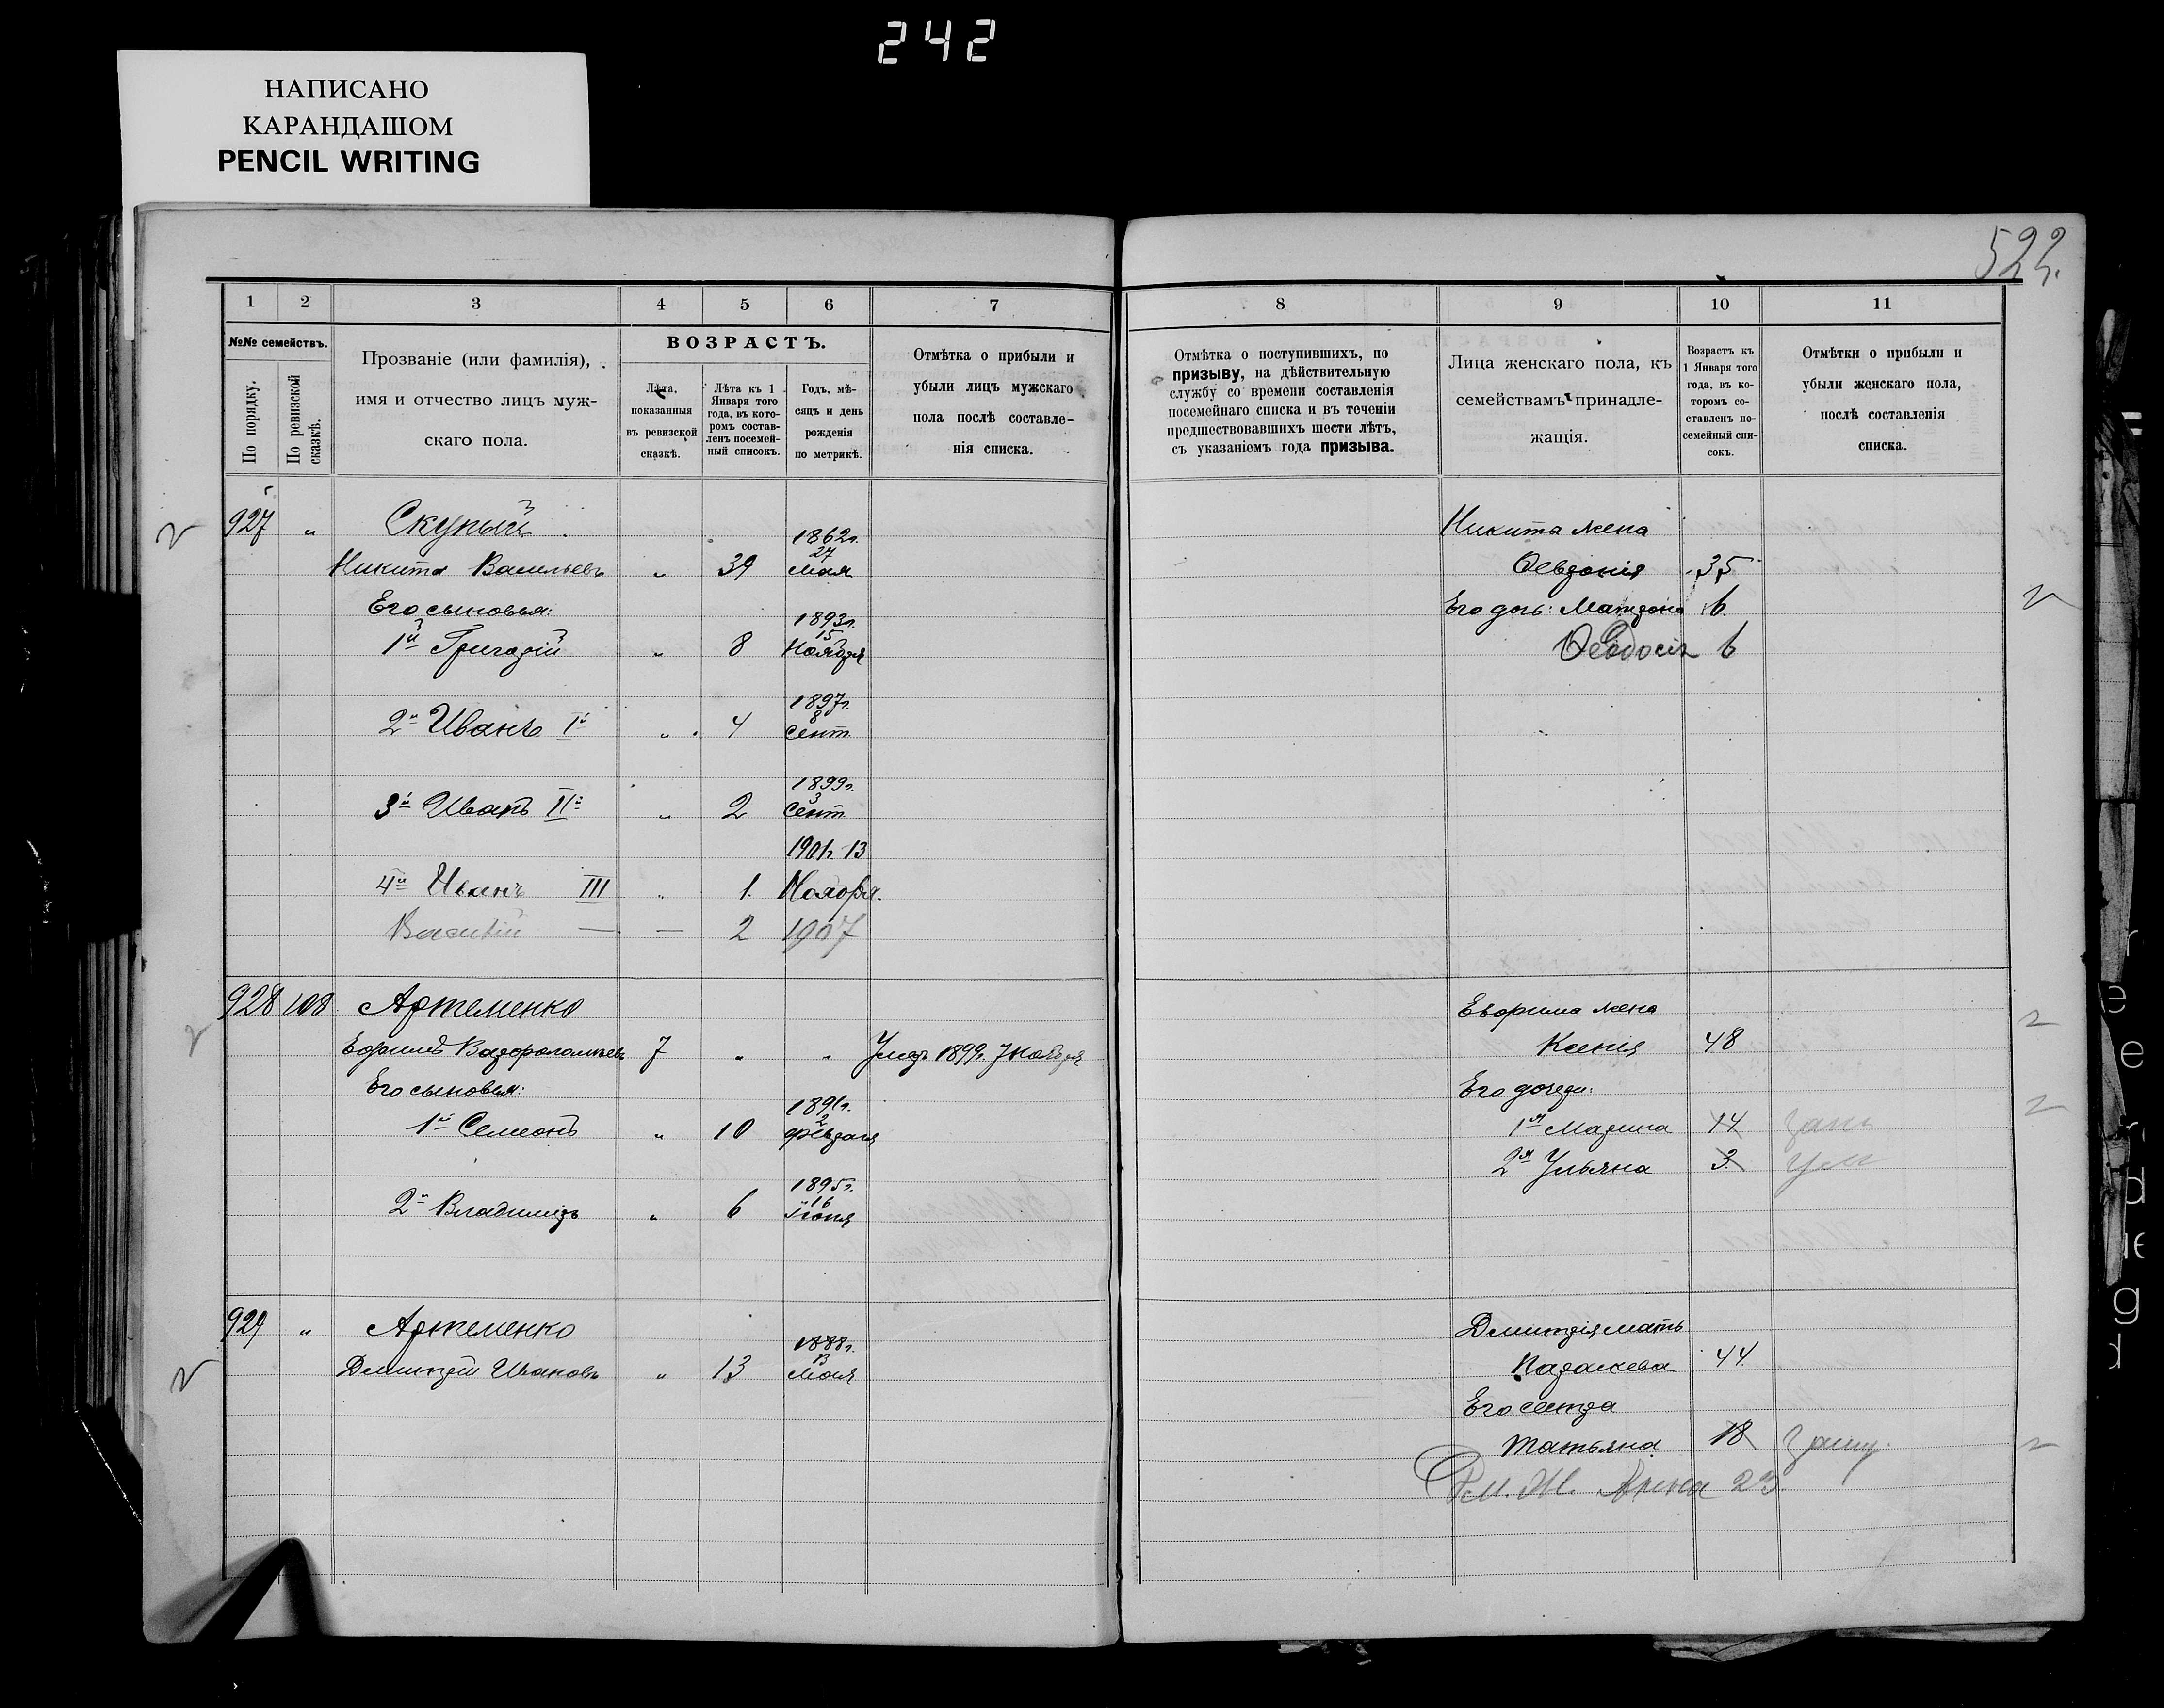 242
НАПИСАНО
КАРАНДАШОМ
PENCIL WRITING
522.
1 2 3 4 5 6 7
№№ семействъ.
По порядку.
По ревизской сказкѣ.
Прозваніе (или фамилія),
имя и отчество лицъ муж-
скаго пола.
ВОЗРАСТЪ.
Лѣта,
показанныя
въ ревизской
сказкѣ.
Лѣта къ 1
Января того
года, въ кото-
ромъ состав-
ленъ посемей-
ный списокъ.
Годъ, мѣ-
сяцъ и день
рожденія
по метрикѣ.
Отмѣтка о прибыли и
убыли лицъ мужскаго
пола послѣ составле-
нія списка.
927 " Скупый
1862г.
Никита Васильевъ " 39 27 Мая
Его сыновья:
1893г.
1й Григорій " 8 15 Ноября
1897г.
2й Иванъ Iй " 4 8 Сент.
1899г.
3й Иванъ IIй " 2 3 Сент.
1901г. 13
4й Иванъ III " 1. Ноября.
Василій — — 2 1907
928 108 Артеменко
Ефримъ Варфоломѣевъ 7 " " Умеръ 1899г. 7 Ноября
Его сыновья:
1891г.
1й Семеонъ " 10 2 Февраля
1895г.
2й Владиміръ " 6 16 Іюня
929 " Артеменко
1888г.
Дмитрій Ивановъ " 13 13 Мая
8 9 10 11
Отмѣтка о поступившихъ, по
призыву, на дѣйствительную
службу со времени составленія
посемейнаго списка и въ теченіи
предшествовавшихъ шести лѣтъ,
съ указаніемъ года призыва.
Лица женскаго пола, къ
семействамъ принадле-
жащія.
Возрастъ къ
1 Января того
года, въ ко-
торомъ со-
ставленъ по-
семейный спи-
сокъ.
Отмѣтки о прибыли и
убыли женскаго пола,
послѣ составленія
списка.
Никита жена
Февронія 35
Его дочь: Матрона 6.
Феодосія 6
Ефрима жена
Ксенія 48
Его дочери:
1я Марина 14
2я Ульяна 3 ум
Дмитрія мать
Параскева 44
Его сестра
Татьяна 18
Дм. Ж. Арина 23